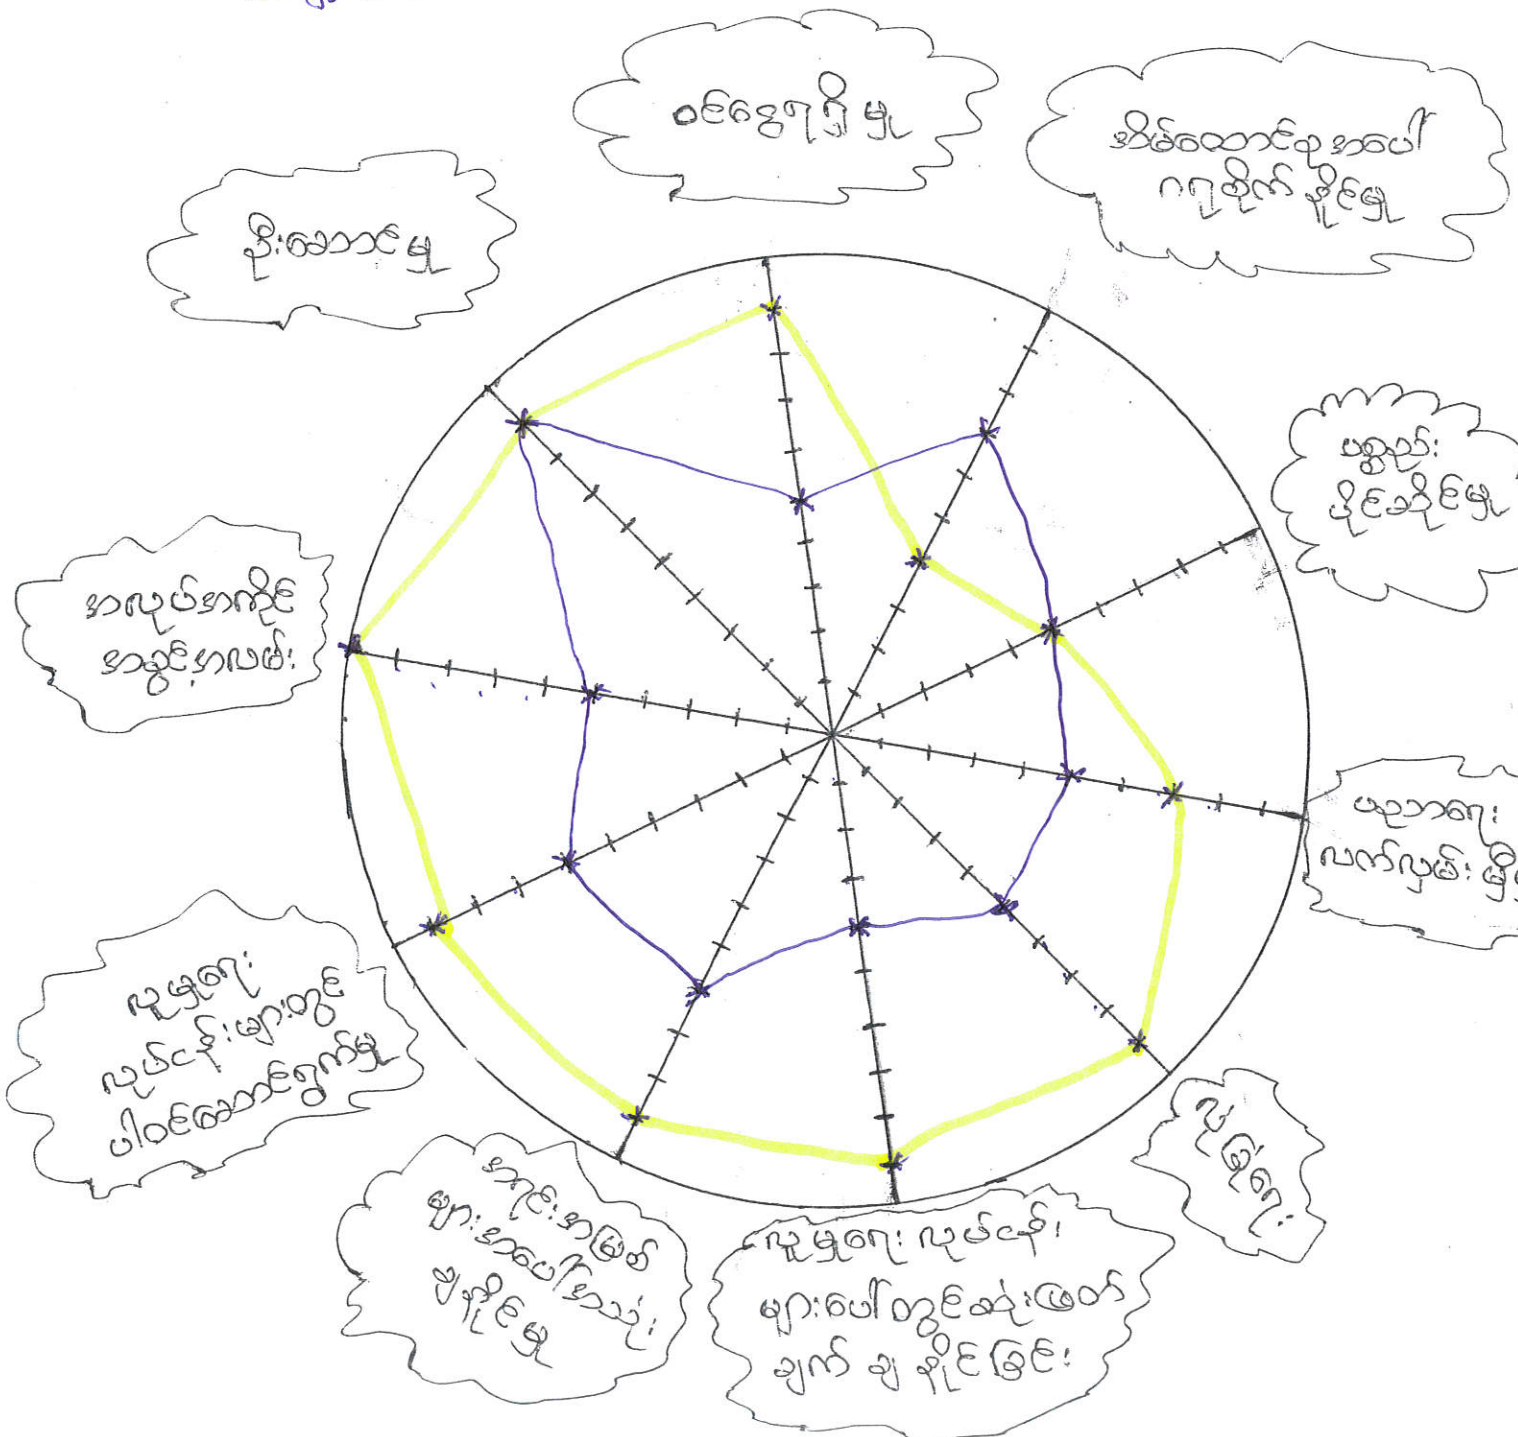 ဝင်ငွေရရှိမှု
အိမ်ထောင်စုအပေါ်
ဂရုစိုက်နိုင်မှု
ဦးဆောင်မှု
ပစ္စည်း
ပိုင်ဆိုင်မှု
အလုပ်အကိုင်
အခွင့်အလမ်း
ပညာရေး
လက်လှမ်းမှီ
လူမှုရေး
လုပ်ငန်းများတွင်
ပါဝင်ဆောင်ရွက်မှု
လုံခြုံရေး
အရင်းအမြစ်
များအပေါ်အသုံး
ချနိုင်မှု
လူမှုရေး လုပ်ငန်း
များပေါ်တွင်ဆုံးဖြတ်
ချက် ချနိုင်ခြင်း